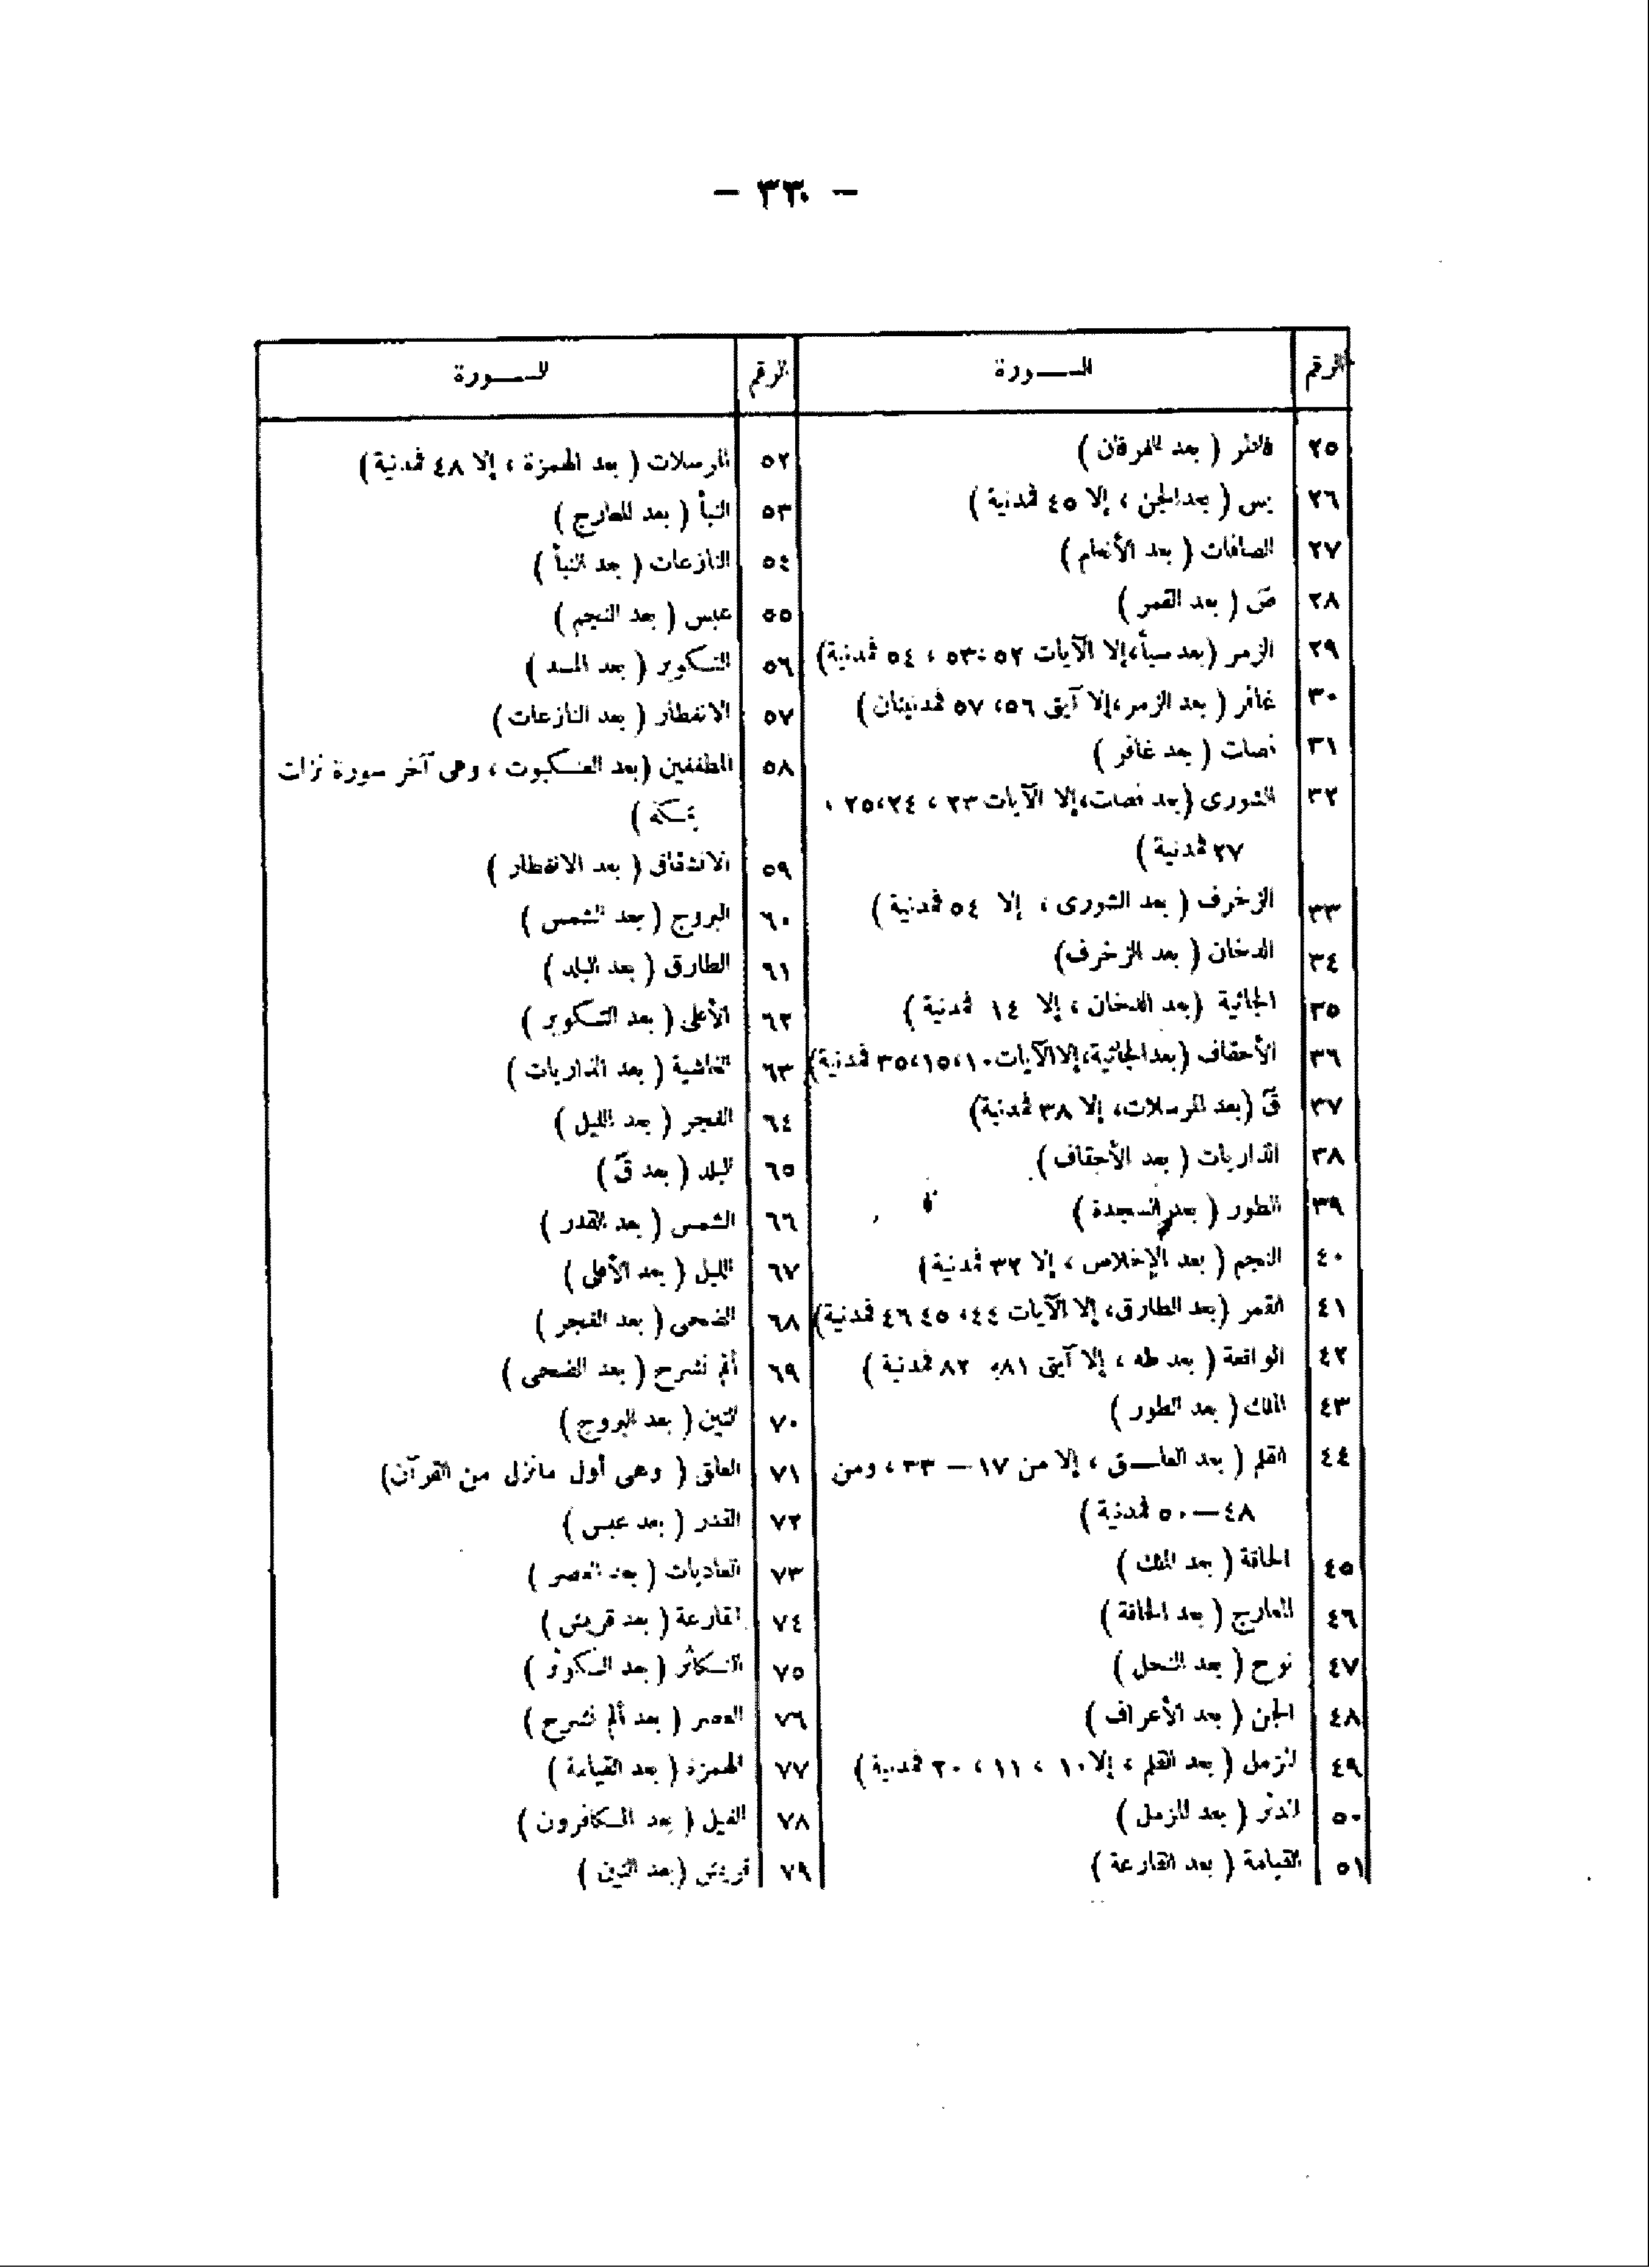 — ٣٣٠ —
الرقم السورة
٢٥ فاطر ( بعد الفرقان )
٢٦ يس ( بعد الجن ، إلا ٤٥ فمدنية )
٢٧ الصافات ( بعد الأنعام )
٢٨ صۤ ( بعد القمر )
٢٩ الزمر (بعد سبأ، إلا الآيات ٥٢ ،٥٣ ، ٥٤ فمدنية)
٣٠ غافر ( بعد الزمر، إلا آيتى ٥٦، ٥٧ فمدنيتان )
٣١ فصلت ( بعد غافر )
٣٢ الشورى (بعد فصلت، إلا الآيات ٢٣ ، ٢٤،٢٥ ،
٢٧ فمدنية )
٣٣ الزخرف ( بعد الشورى ، إلا ٥٤ فمدنية )
٣٤ الدخان ( بعد الزخرف)
٣٥ الجاثية (بعد الدخان ، إلا ١٤ فمدنية )
٣٦ الأحقاف (بعد الجاثية، إلا الآيات ١٠،١٥،٣٥ فمدنية)
٣٧ قۤ (بعد المرسلات، إلا ٣٨ فمدنية)
٣٨ الذاريات ( بعد الأحقاف )
٣٩ الطور ( بعد السجدة )
٤٠ النجم ( بعد الإخلاص ، إلا ٣٢ فمدنية)
٤١ القمر (بعد الطارق، إلا الآيات ٤٤، ٤٥ ٤٦ فمدنية)
٤٢ الواقعة ( بعد طه ، إلا آيتى ٨١، ٨٢ فمدنية )
٤٣ الملك ( بعد الطور )
٤٤ القلم ( بعد العلــق ، إلا من ١٧ — ٣٣ ، ومن
٤٨ — ٥٠ فمدنية )
٤٥ الحاقة ( بعد الملك )
٤٦ المعارج ( بعد الحاقة )
٤٧ نوح ( بعد النحل )
٤٨ الجن ( بعد الأعراف )
٤٩ المزمل ( بعد القلم ، إلا ١٠ ، ١١ ، ٢٠ فمدنية )
٥٠ المدثر ( بعد المزمل )
٥١ القيامة ( بعد القارعة )
الرقم السورة
٥٢ المرسلات ( بعد الهمزة ، إلا ٤٨ فمدنية)
٥٣ النبأ ( بعد المعارج )
٥٤ النازعات ( بعد النبأ )
٥٥ عبس ( بعد النجم )
٥٦ التكوير ( بعد المسد )
٥٧ الانفطار ( بعد النازعات )
٥٨ المطففين (بعد العنكبوت ، وهى آخر سورة نزلت
بمكة )
٥٩ الانشقاق ( بعد الانفطار )
٦٠ البروج ( بعد الشمس )
٦١ الطارق ( بعد البلد )
٦٢ الأعلى ( بعد التكوير )
٦٣ الغاشية ( بعد الذاريات )
٦٤ الفجر ( بعد الليل )
٦٥ البلد ( بعد قۤ )
٦٦ الشمس ( بعد القدر )
٦٧ الليل ( بعد الأعلى )
٦٨ الضحى ( بعد الفجر )
٦٩ ألم نشرح ( بعد الضحى )
٧٠ التين ( بعد البروج )
٧١ العلق ( وهى أول ما نزل من القرآن)
٧٢ القدر ( بعد عبس )
٧٣ العاديات ( بعد العصر )
٧٤ القارعة ( بعد قريش )
٧٥ التكاثر ( بعد الكوثر )
٧٦ العصر ( بعد ألم نشرح )
٧٧ الهمزة ( بعد القيامة )
٧٨ الفيل ( بعد الكافرون )
٧٩ قريش (بعد التين )